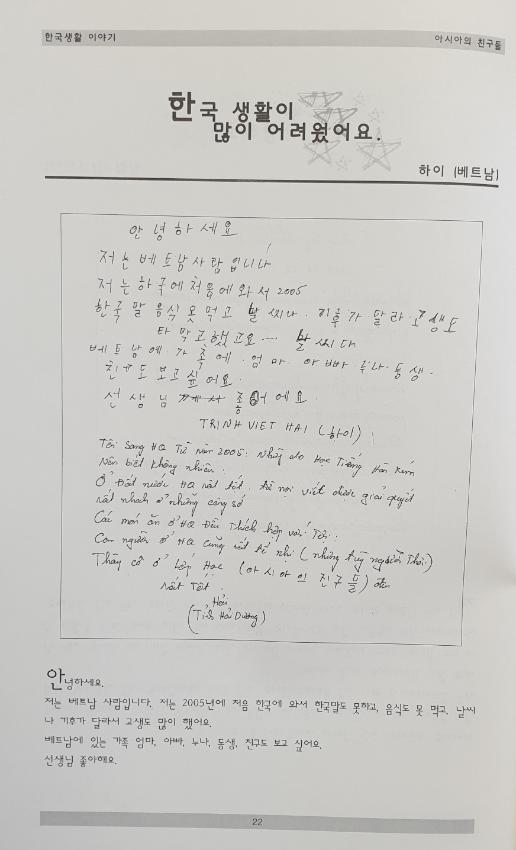 한국생활 이야기
아시아의 친구들
한국 생활이
많이 어려웠어요.
하이 (베트남)
안녕하세요
저는 베트남사람입니다
저는 한국에 처음에 와서 2005
한국 말 음식 못 먹고 날씨나 기후가 달라 고생도
막고 했고요
베트남에 가족에 엄마 아빠 누나 동생
친구도 보고 싶어요.
선생님 좋어에요
TRỊNH VIẾT HAI (하이)
Tôi Sang HQ Từ Năm 2005. Những do Học Tiếng Hàn Kém
Nên biết không nhiều.
Ở Đất nước HQ rất tốt. nơi việt được giải quyết
rất nhanh ở những công sở
Các món ăn ở HQ Đều Thích hợp với Tôi.
Con người ở HQ cũng rất tế nhị (nhưng tùy người Thôi)
Thầy cô ở lớp Học (아시아의 친구들) đều
rất Tốt.
Hải
(Tỉnh Hải Dương)
안녕하세요.
저는 베트남 사람입니다. 저는 2005년에 처음 한국에 와서 한국말도 못하고, 음식도 못 먹고, 날씨
나 기후가 달라서 고생도 많이 했어요.
베트남에 있는 가족 엄마, 아빠, 누나, 동생, 친구도 보고 싶어요.
선생님 좋아해요.
22